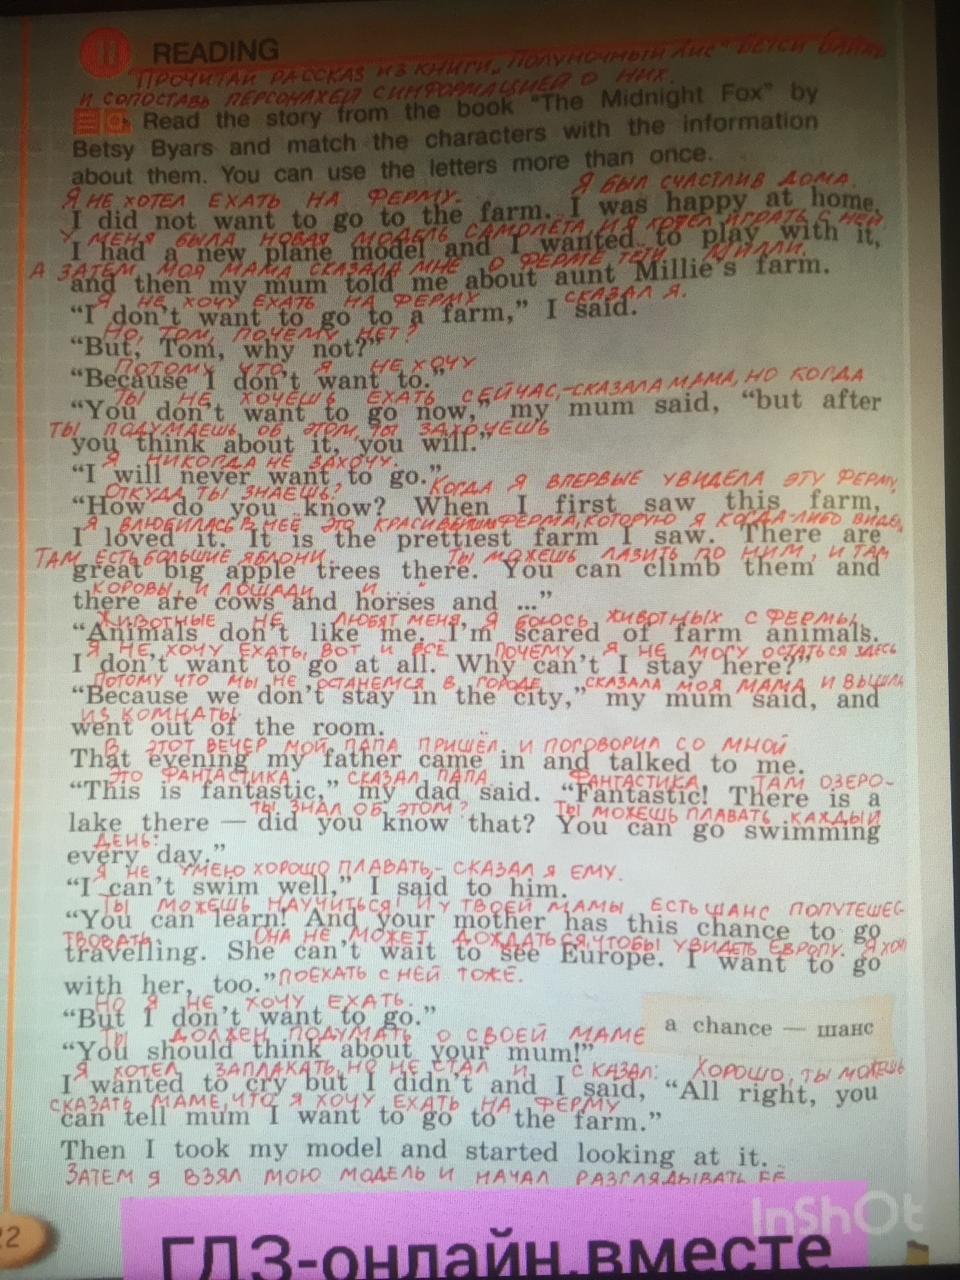 11 READING
ПРОЧИТАЙ РАССКАЗ ИЗ КНИГИ „ ПОЛУНОЧНЫЙ ЛИС" БЕТСИ
И СОПОСТАВЬ ПЕРСОНАЖЕЙ С ИНФОРМАЦИЕЙ О НИХ.
Read the story from the book "The Midnight Fox" by
Betsy Byars and match the characters with the information
about them. You can use the letters more than once.
Я НЕ ХОТЕЛ ЕХАТЬ НА ФЕРМУ. Я БЫЛ СЧАСТЛИВ ДОМА.
I did not want to go to the farm. I was happy at home.
У МЕНЯ БЫЛА НОВАЯ МОДЕЛЬ САМОЛЁТА, И Я ХОТЕЛ ИГРАТЬ С НЕЙ
I had a new plane model and I wanted to play with it,
А ЗАТЕМ МОЯ МАМА СКАЗАЛА МНЕ О ФЕРМЕ ТЁТИ МИЛЛИ.
and then my mum told me about aunt Millie's farm.
Я НЕ ХОЧУ ЕХАТЬ НА ФЕРМУ СКАЗАЛ Я.
"I don't want to go to a farm," I said.
НО, ТОМ, ПОЧЕМУ НЕТ?
"But, Tom, why not?"
ПОТОМУ ЧТО Я НЕ ХОЧУ
"Because I don't want to."
ТЫ НЕ ХОЧЕШЬ ЕХАТЬ СЕЙЧАС,-СКАЗАЛА МАМА, НО КОГДА
"You don't want to go now," my mum said, "but after
ТЫ ПОДУМАЕШЬ ОБ ЭТОМ, ТЫ ЗАХОЧЕШЬ
you think about it, you will."
Я НИКОГДА НЕ ЗАХОЧУ.
"I will never want to go." КОГДА Я ВПЕРВЫЕ УВИДЕЛА ЭТУ ФЕРМУ,
ОТКУДА ТЫ ЗНАЕШЬ?
"How do you know? When I first saw this farm,
Я ВЛЮБИЛАСЬ В НЕЁ ЭТО КРАСИВЕЙШАЯ ФЕРМА, КОТОРУЮ Я КОГДА-ЛИБО ВИДЕ
I loved it. It is the prettiest farm I saw. There are
ТАМ ЕСТЬ БОЛЬШИЕ ЯБЛОНИ. ТЫ МОЖЕШЬ ЛАЗИТЬ ПО НИМ, И ТАМ
great big apple trees there. You can climb them and
КОРОВЫ, И ЛОШАДИ И ...
there are cows and horses and ..."
ЖИВОТНЫЕ НЕ ЛЮБЯТ МЕНЯ. Я БОЮСЬ ЖИВОТНЫХ С ФЕРМЫ,
"Animals don't like me. I'm scared of farm animals.
Я НЕ ХОЧУ ЕХАТЬ, ВОТ И ВСЁ ПОЧЕМУ Я НЕ МОГУ ОСТАТЬСЯ ЗДЕСЬ
I don't want to go at all. Why can't I stay here?"
ПОТОМУ ЧТО МЫ НЕ ОСТАНЕМСЯ В ГОРОДЕ СКАЗАЛА МОЯ МАМА И ВЫШЛА
"Because we don't stay in the city," my mum said, and
ИЗ КОМНАТЫ.
went out of the room.
В ЭТОТ ВЕЧЕР МОЙ ПАПА ПРИШЁЛ И ПОГОВОРИЛ СО МНОЙ
That evening my father came in and talked to me.
ЭТО ФАНТАСТИКА. СКАЗАЛ ПАПА ФАНТАСТИКА ТАМ ОЗЕРО-
"This is fantastic," my dad said. "Fantastic! There is a
ТЫ ЗНАЛ ОБ ЭТОМ? ТЫ МОЖЕШЬ ПЛАВАТЬ КАЖДЫЙ
lake there — did you know that? You can go swimming
ДЕНЬ.
every day."
Я НЕ УМЕЮ ХОРОШО ПЛАВАТЬ,- СКАЗАЛ Я ЕМУ.
"I can't swim well," I said to him.
ТЫ МОЖЕШЬ НАУЧИТЬСЯ! И У ТВОЕЙ МАМЫ ЕСТЬ ШАНС ПОПУТЕШЕС-
"You can learn! And your mother has this chance to go
ТВОВАТЬ. ОНА НЕ МОЖЕТ ДОЖДАТЬСЯ, ЧТОБЫ УВИДЕТЬ ЕВРОПУ. Я ХОЧУ
travelling. She can't wait to see Europe. I want to go
with her, too." ПОЕХАТЬ С НЕЙ ТОЖЕ.
НО Я НЕ ХОЧУ ЕХАТЬ.
"But I don't want to go."
a chance — шанс
ТЫ ДОЛЖЕН ПОДУМАТЬ О СВОЕЙ МАМЕ
"You should think about your mum!"
Я ХОТЕЛ ЗАПЛАКАТЬ, НО НЕ СТАЛ И СКАЗАЛ: ХОРОШО, ТЫ МОЖЕШЬ
I wanted to cry but I didn't and I said, "All right, you
СКАЗАТЬ МАМЕ, ЧТО Я ХОЧУ ЕХАТЬ НА ФЕРМУ
can tell mum I want to go to the farm."
Then I took my model and started looking at it.
ЗАТЕМ Я ВЗЯЛ МОЮ МОДЕЛЬ И НАЧАЛ РАЗГЛЯДЫВАТЬ ЕЁ
InShOt
22
ГДЗ-онлайн.вместе